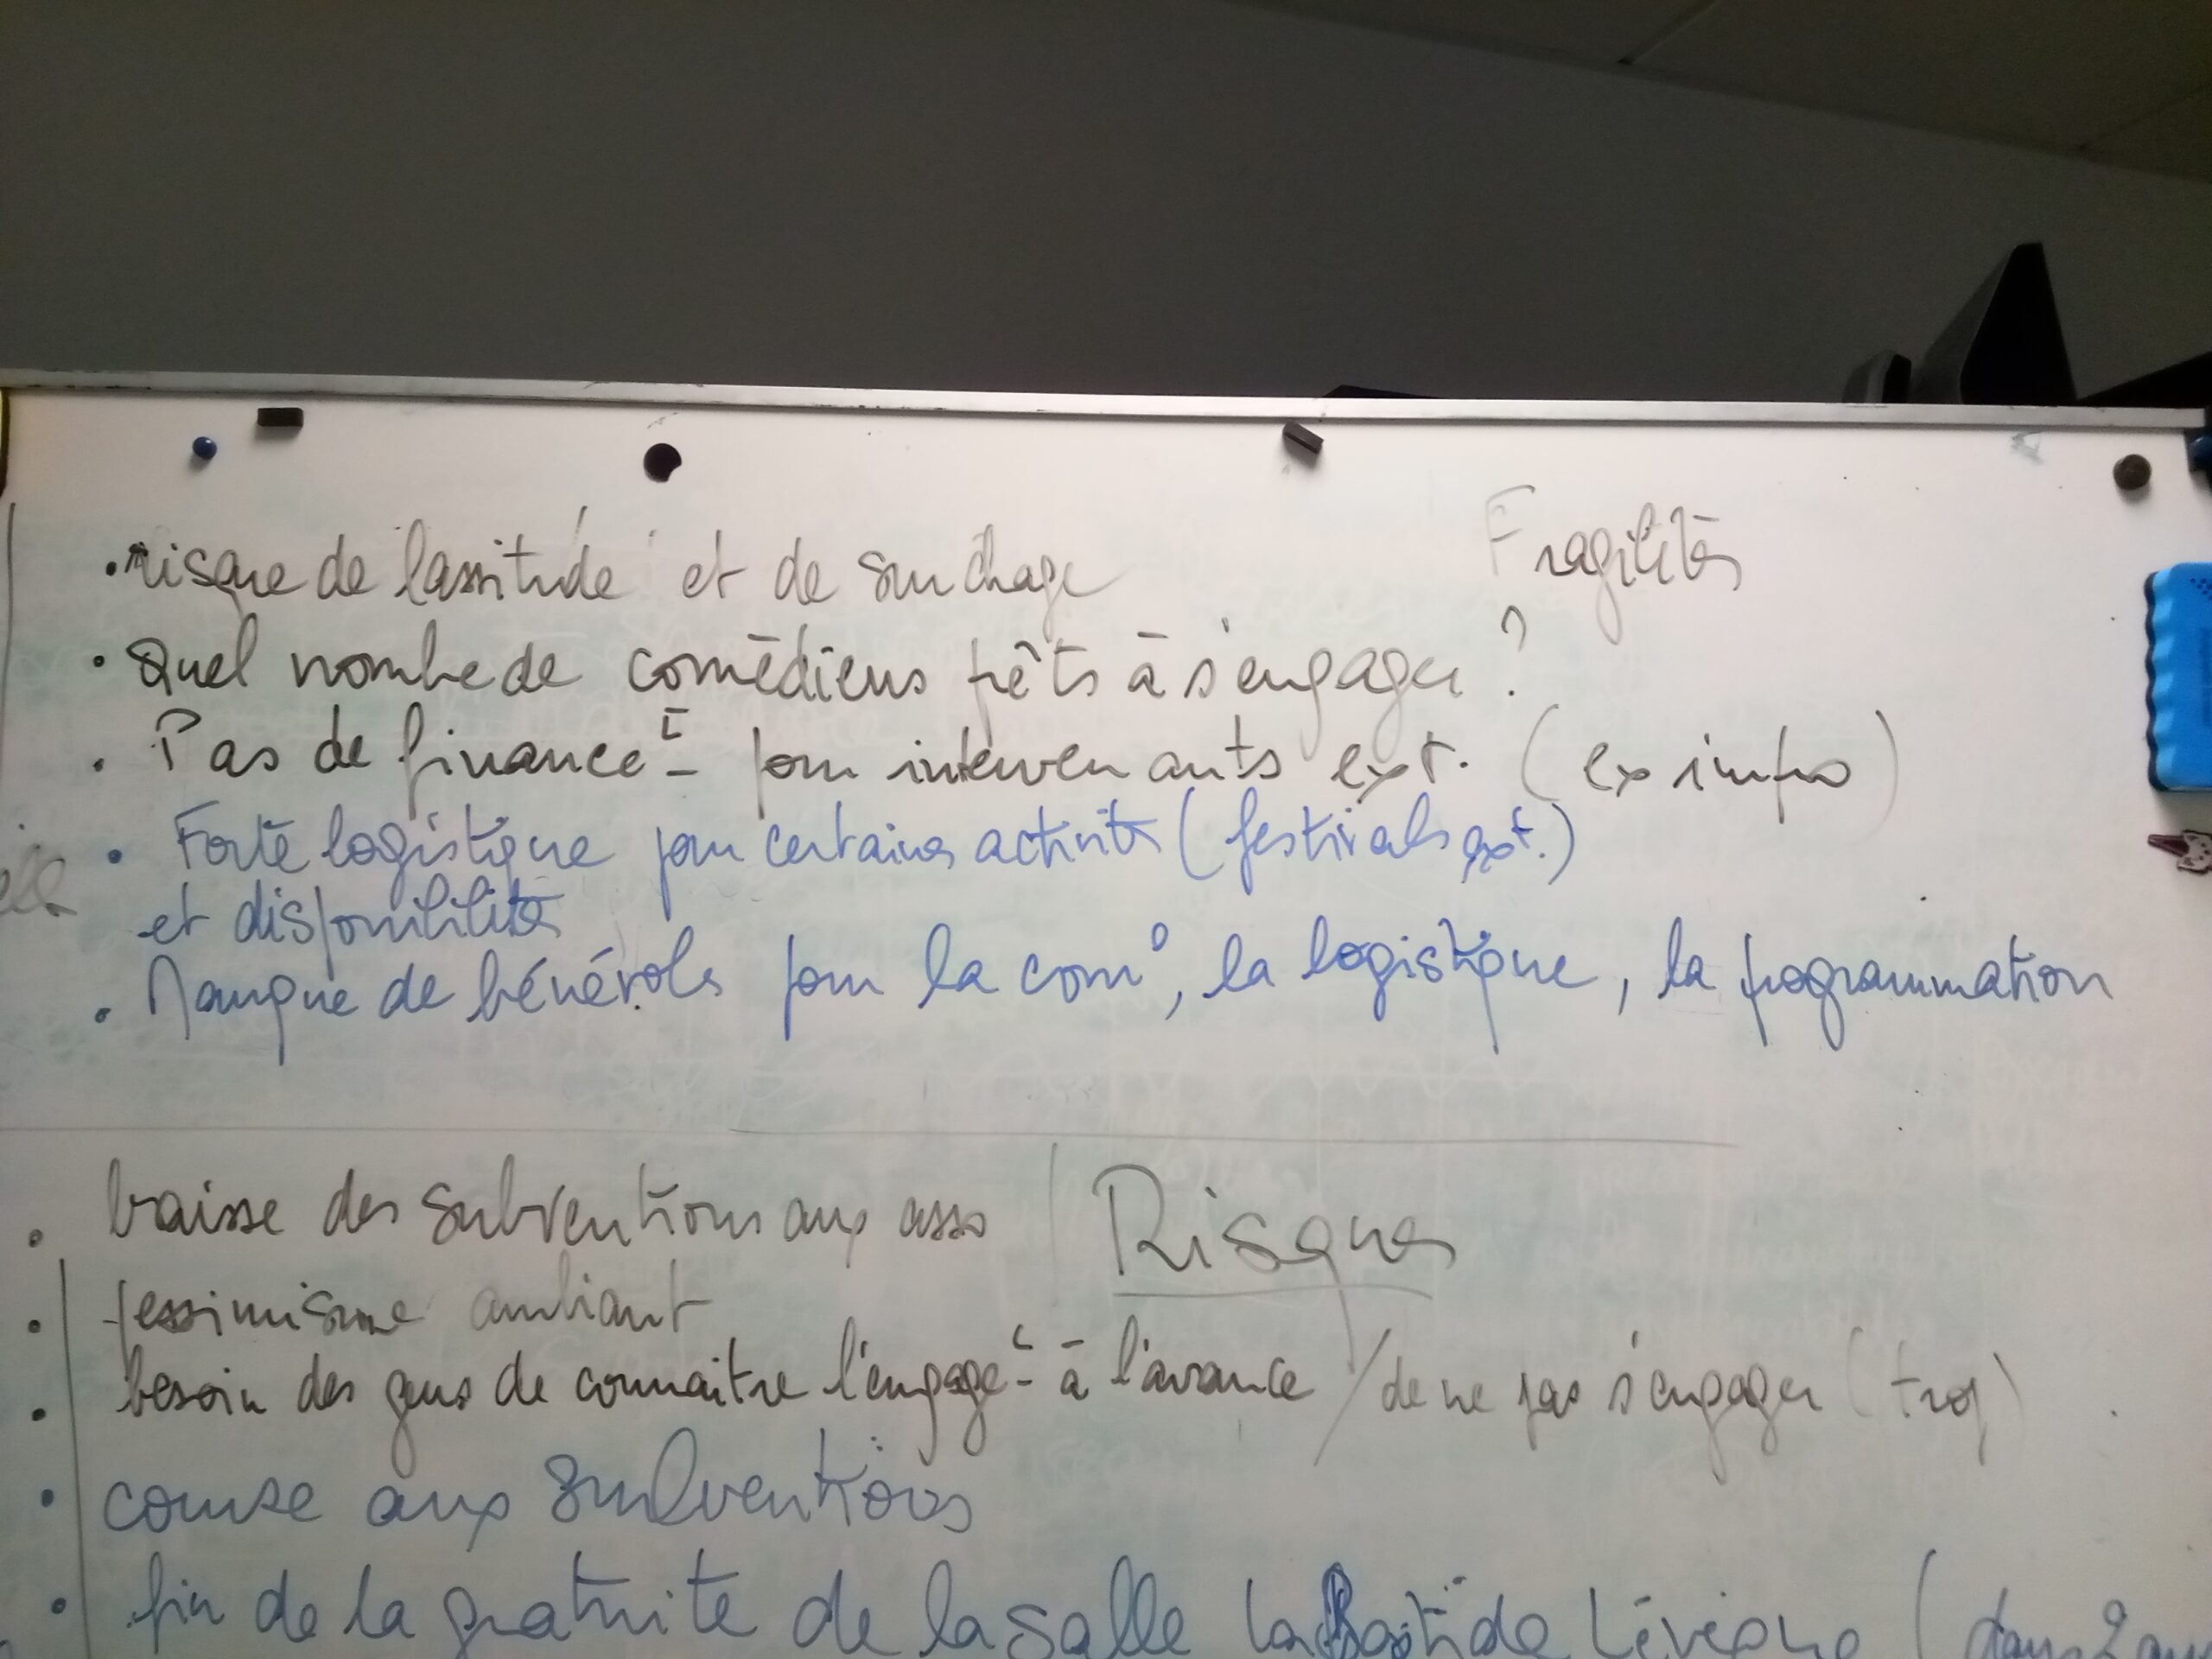 Fragilités
• risque de lassitude et de surchage
• Quel nombre de comédiens prêts à s'engager ?
• Pas de financet- pour intervenants ext. (ex impro)
• Forte logistique pour certaines activités (festivals ext.)
et disponibilités
• Manque de bénévols pour la com°, la logistique, la programmation
• baisse des subventions aux asso
Risques
• pessimisme ambiant
• besoin des gens de connaitre l'engaget- à l'avance / de ne pas s'engager (trop)
• course aux subventions
• fin de la gratuite de la salle la Bastide L'évêque (dans 2